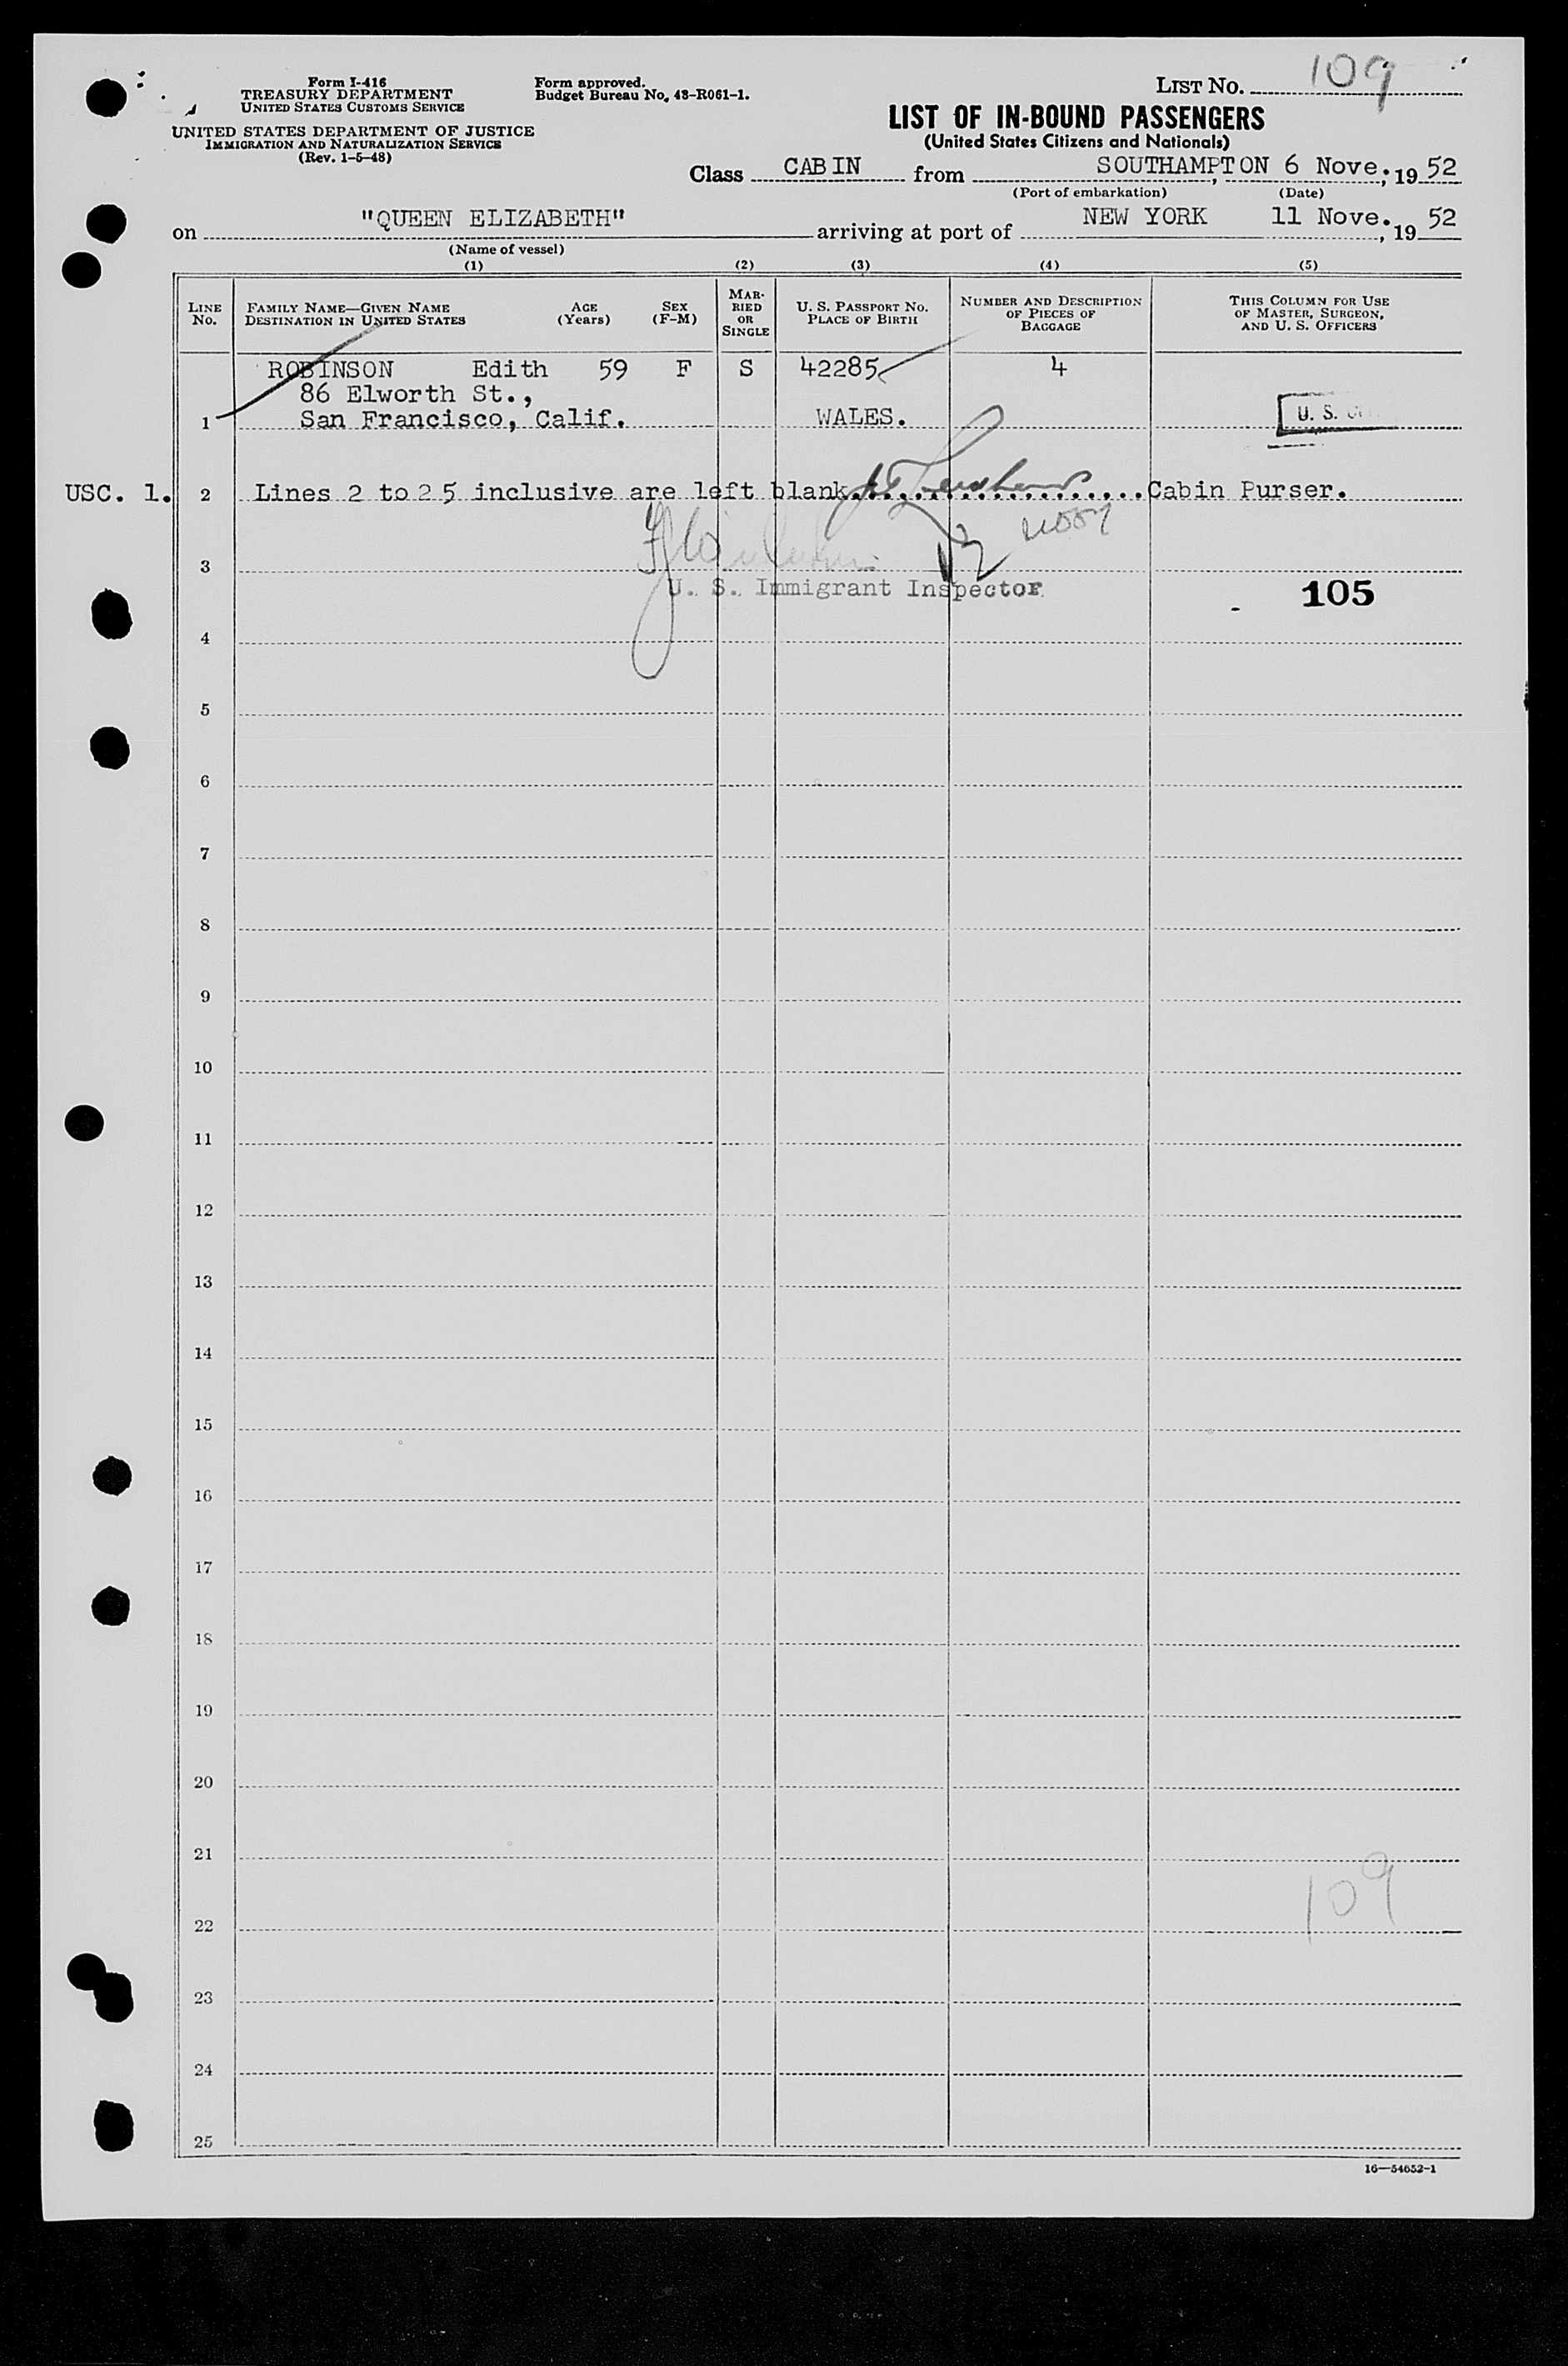 Form I-416
TREASURY DEPARTMENT
UNITED STATES CUSTOMS SERVICE
UNITED STATES DEPARTMENT OF JUSTICE
IMMIGRATION AND NATURALIZATION SERVICE
(Rev. 1-5-48)
Form approved.
Budget Bureau No. 43-R061-1.
LIST NO. 109
LIST OF IN-BOUND PASSENGERS
(United States Citizens and Nationals)
Class CABIN from SOUTHAMPTON 6 Nove., 1952
(Port of embarkation) (Date)
on "QUEEN ELIZABETH" arriving at port of NEW YORK 11 Nove., 1952
(Name of vessel)
(1) (2) (3) (4) (5)
LINE No. FAMILY NAME—GIVEN NAME DESTINATION IN UNITED STATES AGE (Years) SEX (F-M) MARRIED OR SINGLE U. S. PASSPORT NO. PLACE OF BIRTH NUMBER AND DESCRIPTION OF PIECES OF BAGGAGE THIS COLUMN FOR USE OF MASTER, SURGEON, AND U. S. OFFICERS
ROBINSON Edith 59 F S 42285 4
86 Elworth St.,
1 San Francisco, Calif. WALES. U. S.
USC. 1. 2 Lines 2 to 25 inclusive are left blank. Cabin Purser.
3
U. S. Immigrant Inspector 105
4
5
6
7
8
9
10
11
12
13
14
15
16
17
18
19
20
21
109
22
23
24
25
16—54652-1